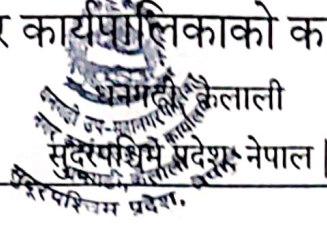 र कार्यपालिकाको क
धनगढी, कैलाली
सुदूरपश्चिम प्रदेश, नेपाल |
सुदूरपश्चिम प्रदेश,